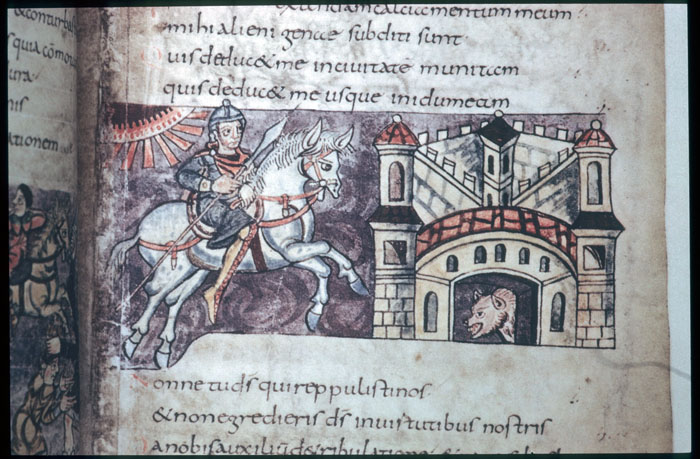 conturb
s quia cōmo
ura
nis
ationem
extendam calciamentum meum
mihi alieni genae subditi sunt
Quis deduc& me inciuitate munitam
quis deduc& me usque inidumeam
Nonne tu d̄s qui reppulistinos
& non egredieris d̄s inuirtutibus nostris
Da nobis auxiliū de tribulatione